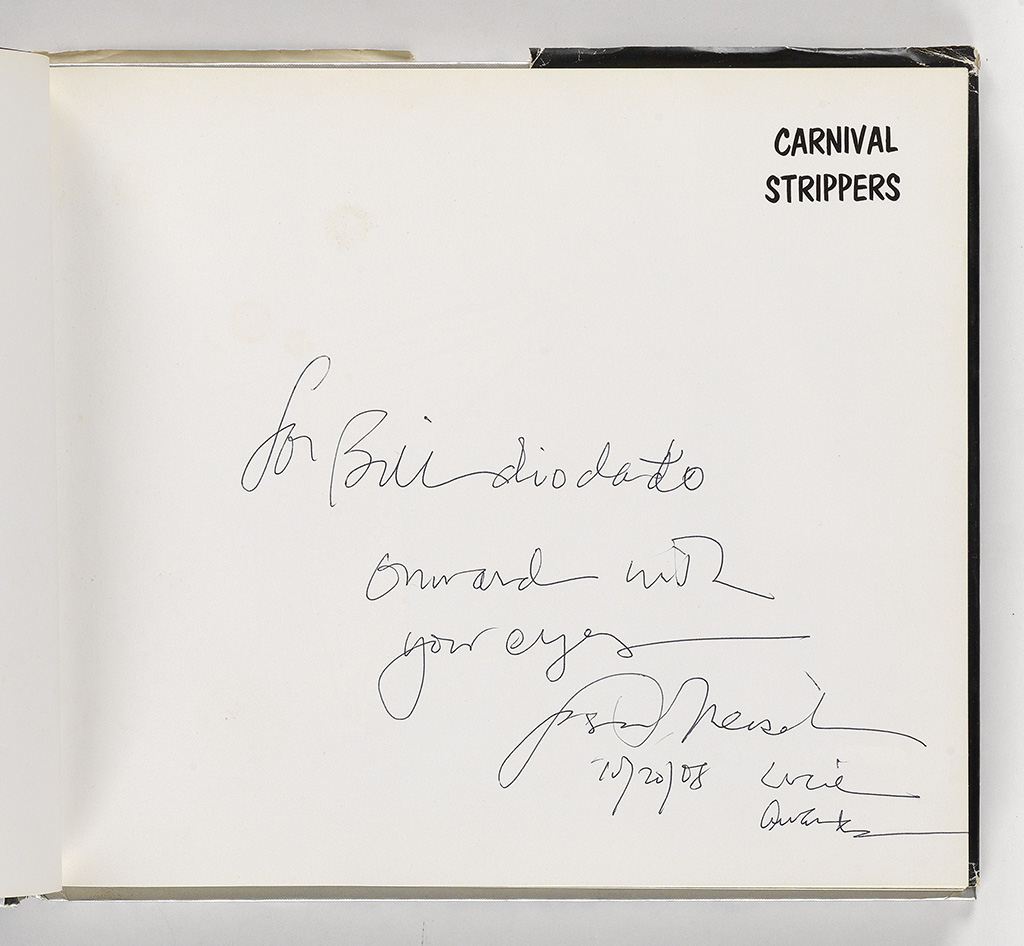 CARNIVAL
STRIPPERS
for Bill diodato
onward with
your eyes
10/20/08 Lucie
Awards